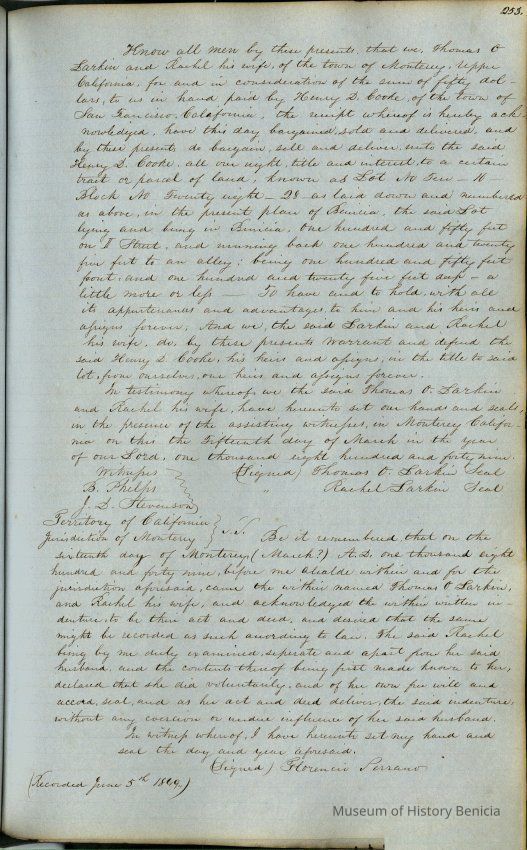 253.
Know all men by these presents, that we, Thomas O
Larkin and Rachel his wife, of the town of Monterey, Upper
California, for and in consideration of the sum of fifty dol-
lars, to us in hand paid by Henry D. Cooke, of the town of
San Francisco, California, the receipt whereof is hereby ack-
nowledged, have this day bargained, sold and delivered, and
by these presents, do bargain, sell and deliver, unto the said
Henry D. Cooke, all our right, title and interest, to a certain
tract or parcel of land, known as Lot No Ten – 10
Block No Twenty eight – 28 – as laid down and numbered
as above, in the present plan of Benicia, the said Lot
lying and being in Benicia, One hundred and fifty feet
on I Street, and running back one hundred and twenty
five feet to an alley; being one hundred and fifty feet
front, and one hundred and twenty five feet deep – a
little more or less — To have and to hold, with all
its appurtenances and advantages, to him and his heirs and
assigns forever, And we, the said Larkin and Rachel
his wife, do, by these presents Warrant and defend the
said Henry D. Cooke, his heirs and assigns, in the title to said
lot, from ourselves, our heirs and assigns forever.
In testimony whereof, we the said Thomas O. Larkin
and Rachel his wife, have hereunto set our hands and seals,
in the presence of the assisting witnesses, in Monterey Califor-
nia on this the Fifteenth day of March in the year
of our Lord, one thousand eight hundred and forty nine.
Witnesses (Signed) Thomas O. Larkin Seal
B. Phelps " Rachel Larkin Seal
J. D. Stevenson
Territory of California
Jurisdiction of Monterey } S.S. Be it remembered, that on the
sixteenth day of Monterey (March?) A.D. one thousand eight
hundred and forty nine, before me alcalde within and for the
jurisdiction aforesaid, came the within named Thomas O Larkin,
and Rachel his wife, and acknowledged the within written in-
denture, to be their act and deed, and desired that the same
might be recorded as such according to law. The said Rachel
being by me duly examined, seperate and apart from her said
husband, and the contents thereof being first made known to her,
declared that she did voluntarily, and of her own free will and
accord, seal, and as her act and deed deliver, the said indenture,
without any coercion or undue influence of her said husband.
In witness whereof, I have hereunto set my hand and
seal the day and year aforesaid.
(Signed) Florencio Serrano
(Recorded June 5th 1849.)
Museum of History Benicia